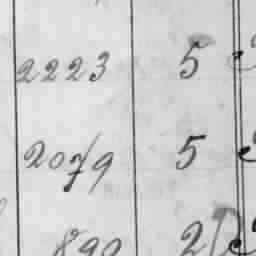 2223 5
2079 5
890 2